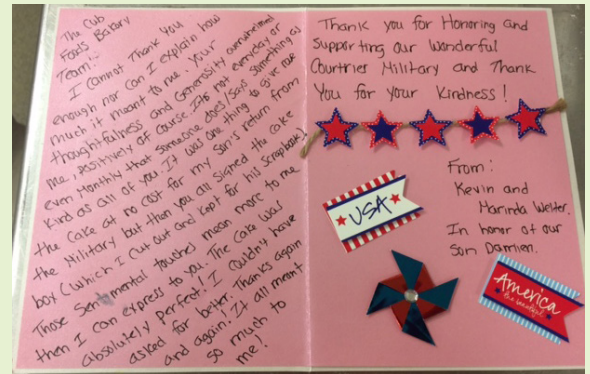 The Cub
Foods Bakery
Team!:
I cannot Thank you
enough nor can I explain how
much it meant to me. Your
thoughtfulness and Generosity overwhelmed
me, positively of course. Its not everyday or
even Monthly that someone does/says something as
kind as all of you. It was one thing to give me
the cake at no cost for my Son's return from
the Military but then you all signed the cake
box (which I cut out and kept for his scrapbook).
Those Sentimental touches mean more to me
then I can express to you. The cake was
absolutely perfect! I couldn't have
asked for better. Thanks again
and again. It all meant
so much to
me!
Thank you for Honoring and
Supporting our Wonderful
Countries Military and Thank
You for your Kindness!
From:
Kevin and
Marinda Welter.
In honor of our
Son Damien.
USA
America
the beautiful